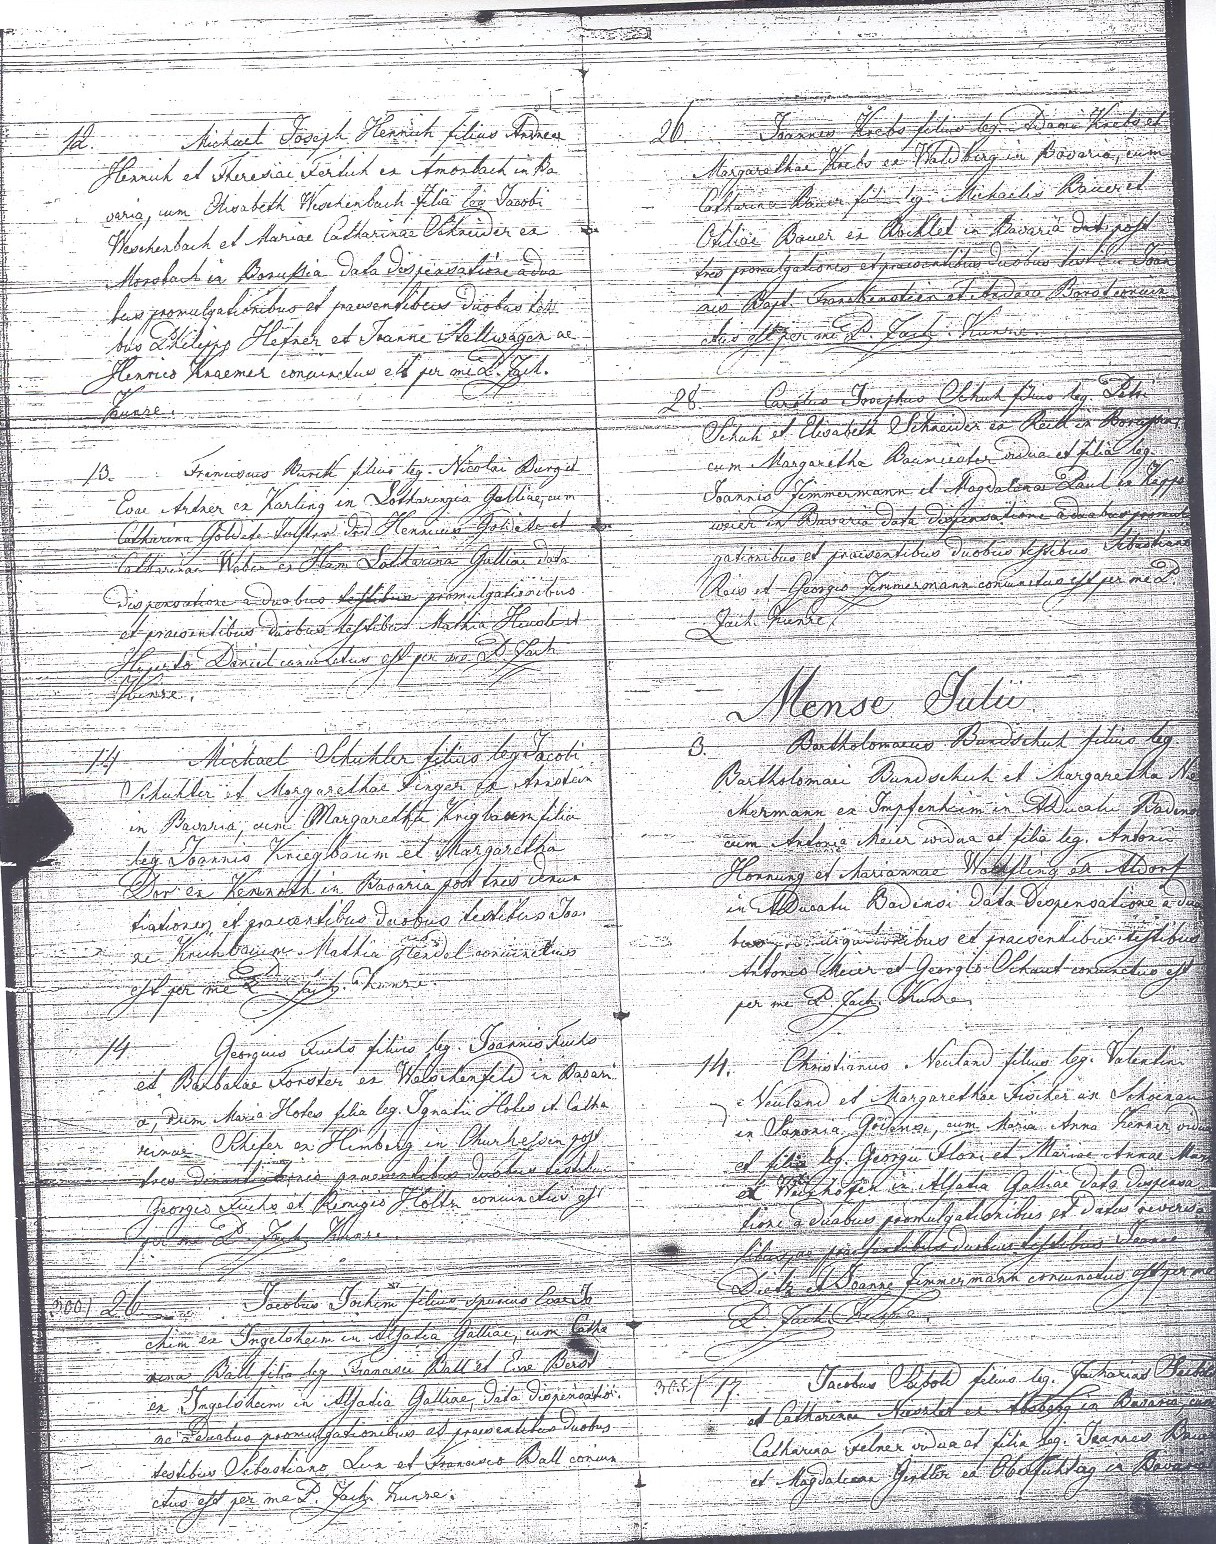 12. Michael Joseph Hennich filius Andreae
Hennich et Theresiae Fertich ex Amorbach in Ba
varia, cum Elisabeth Weschenbach filia leg Jacobi
Weschenbach et Mariae Catharinae Schneider ex
Morsbach in Borussia data dispensatione a dua
bus promulgationibus et praesentibus duobus testi
bus Philippo Hefner et Joanne Stellwagen ac
Henrico Kraemer coniunctus est per me P. Zach.
Kunze.
13. Franciscus Burck filius leg. Nicolai Burg et
Evae Artner ex Karling in Lotharingia Galliae, cum
Catharina Henricus et
Catharinae Weber ex Ham Lotharina Galliae data
dispensatione a duabus testibus promulgationibus
et praesentibus duobus testibus Mathia et
Huperto Daniel coniunctus est per me P. Zach
Kunze.
14 Michael Schuhler filius leg Jacobi
Schuhler et Margarethae Finger ex Arnstein
in Bavaria, cum Margaretha Krigbaum filia
leg Joannis Kriegbaum et Margaretha
Dor ex Kemnath in Bavaria post tres denun
tiationes et praesentibus duobus testibus Joa
ne Kriehbaum Mathia Hendel coniunctus
est per me P. Zach. Kunze.
14 Georgius Fuchs filius leg. Joannis Fuchs
et Barbarae Forster ex Weischenfeld in Bavari
a, cum Maria Hohes filia leg. Ignatii Hohes et Catha
rinae Schifer ex Himberg in Churhessen post
tres denuntiationes praesentibus duobus testibus
Georgio Fuchs et Remigio coniunctus est
per me P. Zach Kunze.
300) 26 Jacobus Jochim filius spurius Evae Jo
chim ex Ingelsheim in Alsatia Galliae, cum Catha
rina Ball filia leg Francisci Ball et Evae
ex Ingelsheim in Alsatia Galliae, data dispensatio
ne a duabus promulgationibus et praesentibus duobus
testibus Sebastiano Lux et Francisco Ball coniun
ctus est per me P. Zach. Kunze.
26. Joannis Krebs filius leg. Adami Krebs et
Margarethae Krebs ex Waldberg in Bavaria, cum
Catharina Bauer filia leg. Michaelis Bauer et
Otiliae Bauer ex Bocklet in Bavaria post
tres promulgationes et praesentibus duobus testibus Joan
nis Bapt. Franckenstein et Andrea coniun
ctus est per me P. Zach. Kunze.
28. Carolus Josephus Schuh filius leg. Petri
Schuh et Elisabeth Schneider ex in Borussia,
cum Margaretha Baumeister vidua et filia leg.
Joannis Zimmermann et Magdalenae Paul ex Kapps
weier in Bavaria data dispensatione a duabus promul
gationibus et praesentibus duobus testibus Sebastiano
Reis et Georgio Zimmermann coniunctus est per me P.
Zach. Kunze.
Mense Julii
3. Bartholomaeus Bundschuh filius leg.
Bartholomaei Bundschuh et Margaretha
mermann ex Impfenheim in ADucatu Badino
cum Antonia Meier vidua et filia leg. Antonii
Hornung et Mariannae ex Aldorf
in ADucatu Badensi data Despensatione a dua
bus et praesentibus testibus
Antonio Meier et Georgio Schaut coniunctus est
per me P. Zach. Kunze.
14. Christianus Neuland filius leg. Valentin
e Neuland et Margarethae Fischer ex Schoenau
in Saxonia, cum Maria Anna vidua
et filia leg. Georgii et Mariae Annae
ex in Alsatia Galliae data dispensa
tione a duabus promulgationibus et Datis
praesentibus duobus testibus Joanne
Dietz et Joanne Zimmermann coniunctus est per me
P. Zach. Kunze.
305) 17. Jacobus Seibold filius leg. Zacharias Seibold
et Catharinae ex in Bavaria cum
Catharina Felner vidua et filia leg. Joannes Bauer
et Magdalena ex in Bavaria